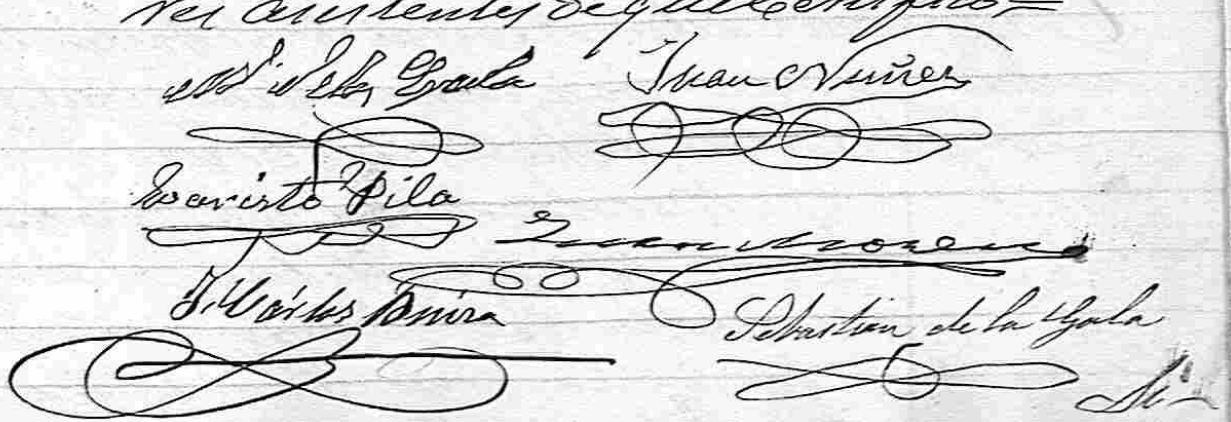 res asistentes de que certifico=
Mª de la Gala Juan Nuñez
Evaristo Pila
Juan Moreno
J. Carlos
Sebastian de la Gala